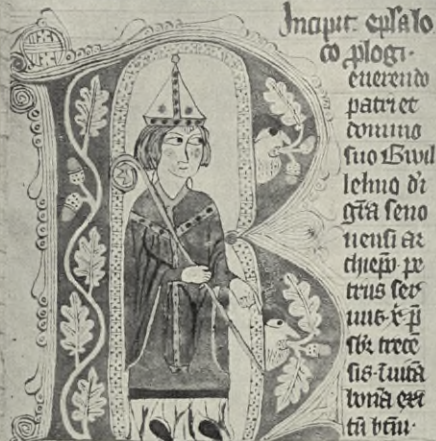 Incipit epl̃a lo
co ꝓlogi·
euerendo
patri et
domino
suo Gwil
lelmo di̾
gr̃a seno
nensi ar
chiep̃o pe
trus ser
uus x̄ p̄
sbr̃ trecē
sis ⁊ uitā
bonā exi
tū btm̄·